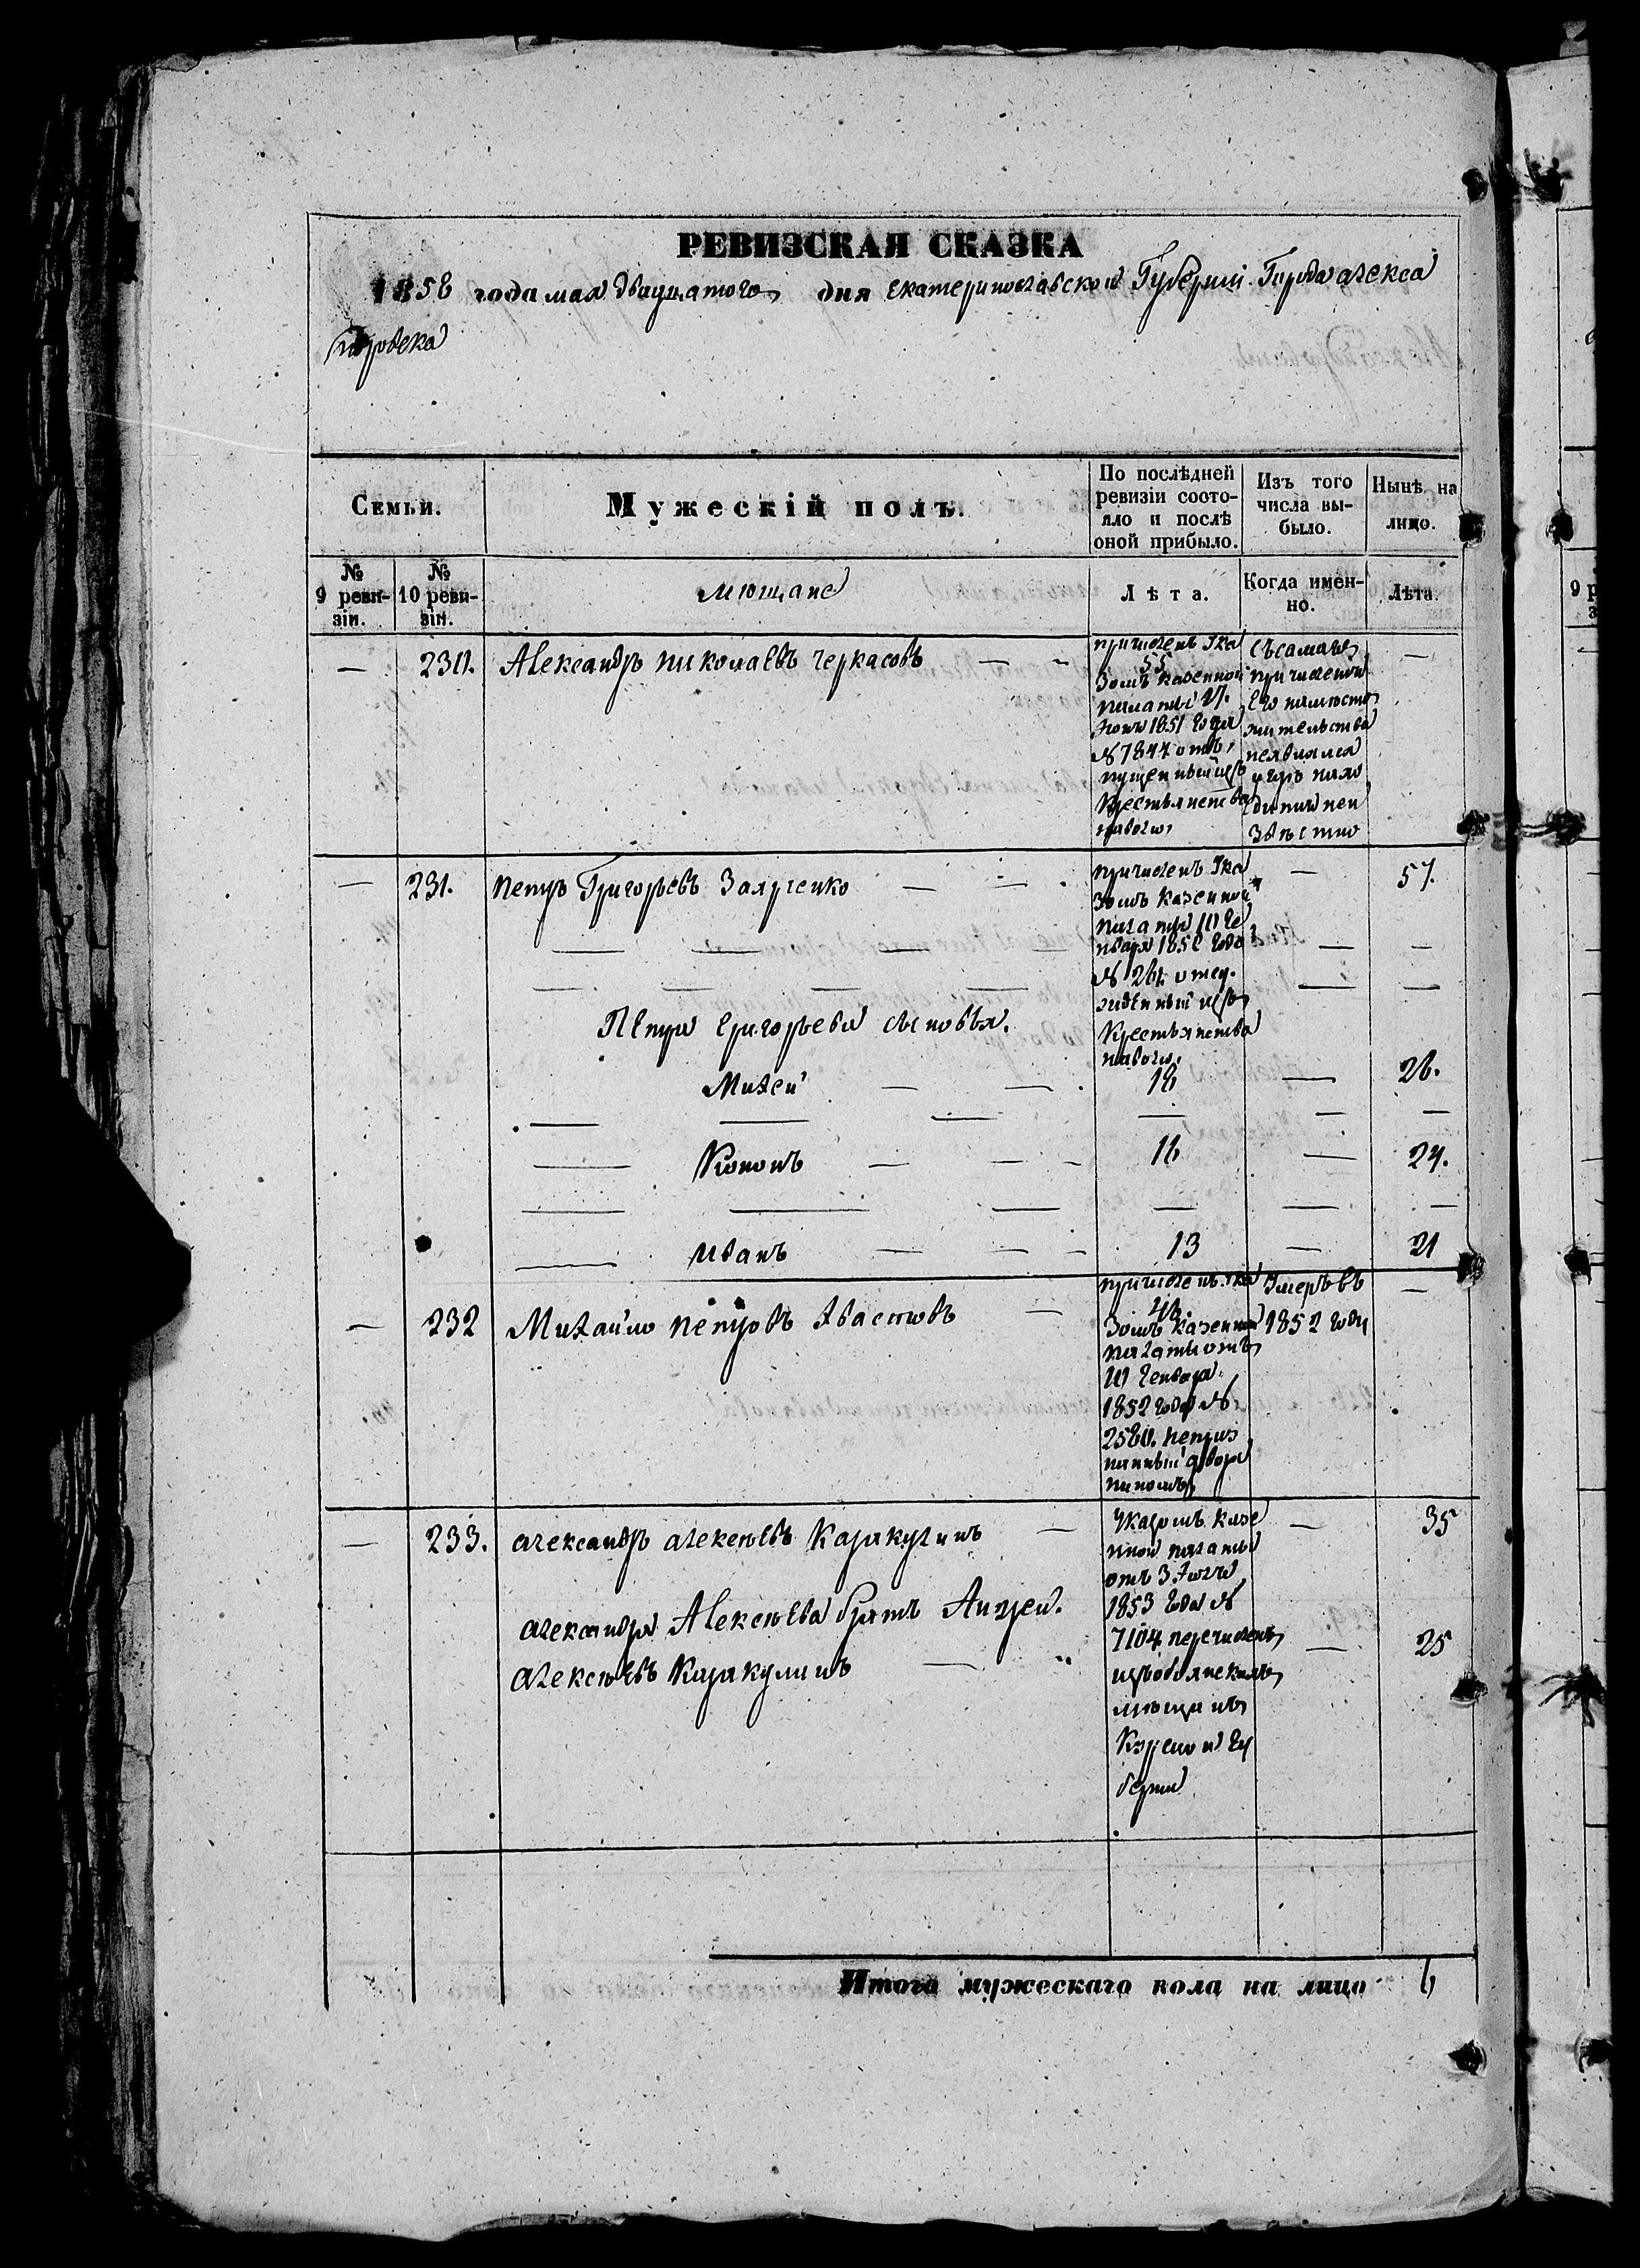 РЕВИЗСКАЯ СКАЗКА
1858 года мая двацатого дня Екатеринославской Губерніи Города Алекса
ндровска
Семьи.
Мужескій полъ.
По послѣдней
ревизіи состо-
яло и послѣ
оной прибыло.
Изъ того
числа вы-
было.
Нынѣ на
лицо.
№
9 реви-
зіи.
№
10 реви-
зіи.
мющане
Лѣта.
Когда имен-
но.
Лѣта.
— 230. Александръ Николаевъ Черкасовъ — -
причисленъ Ука
55
зомъ Казенной
Палаты
1851 года
№ 7844 отъ
пущенный изъ
Крестьянства
наволю
Съсамаго
причисленія
его наместо
жительства
неявился
и гдѣ нахо
дится неи
звѣстно
—
— 231. Петръ Григорьевъ Заярченко — — .
причисленъ Ука
зомъ Казенной
Палаты 10 Ге
нваря 1852 года
№ 264 отсу.
жденный изъ
Крестьянства
наволю.
— 57.
Петра Григорьева сыновья.
Михей — — . 18 — 26.
— Кононъ — — - 16 — 24.
— Иванъ — — - 13 — 21
— 232 Михайло Петровъ Хвастовъ —
причисленъ Ука
46.
зомъ Казенной
Палаты отъ
10 Генваря
1852 года №
2560.
Умеръ въ
1852 году
—
— 233. Александръ Алексѣевъ Каракулинъ —
Указомъ Казе
нной Палаты
отъ 3 Іюля
1853 года №
7104 перечисленъ
изъ Обоянскихъ
мющанъ
Курской Гу
берніи
— 35
Александра Алексѣева братъ Андрей.
Алексѣевъ Каракулинъ — — 25
Итого мужескаго пола на лицо 6